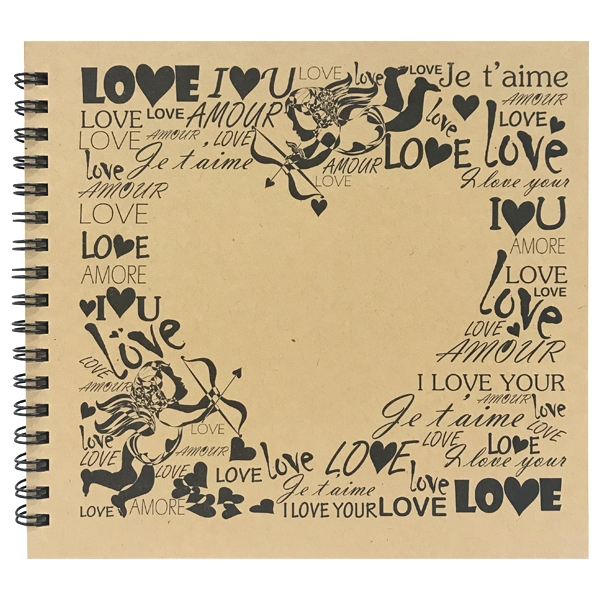 LOVE I U LOVE love LOVE Je t'aime
LOVE LOVE AMOUR love AMOUR
LOVE AMOUR LOVE LOVE love
love Je t'aime AMOUR
AMOUR LOVE I love your
LOVE I U
LOVE AMORE
AMORE LOVE
I U LOVE
love love
LOVE LOVE
AMOUR AMOUR
I LOVE YOUR
LOVE AMOUR
Je t'aime love
love AMOUR LOVE LOVE love
LOVE LOVE love LOVE I love your
AMOUR Je t'aime love
LOVE AMORE I LOVE YOUR LOVE LOVE